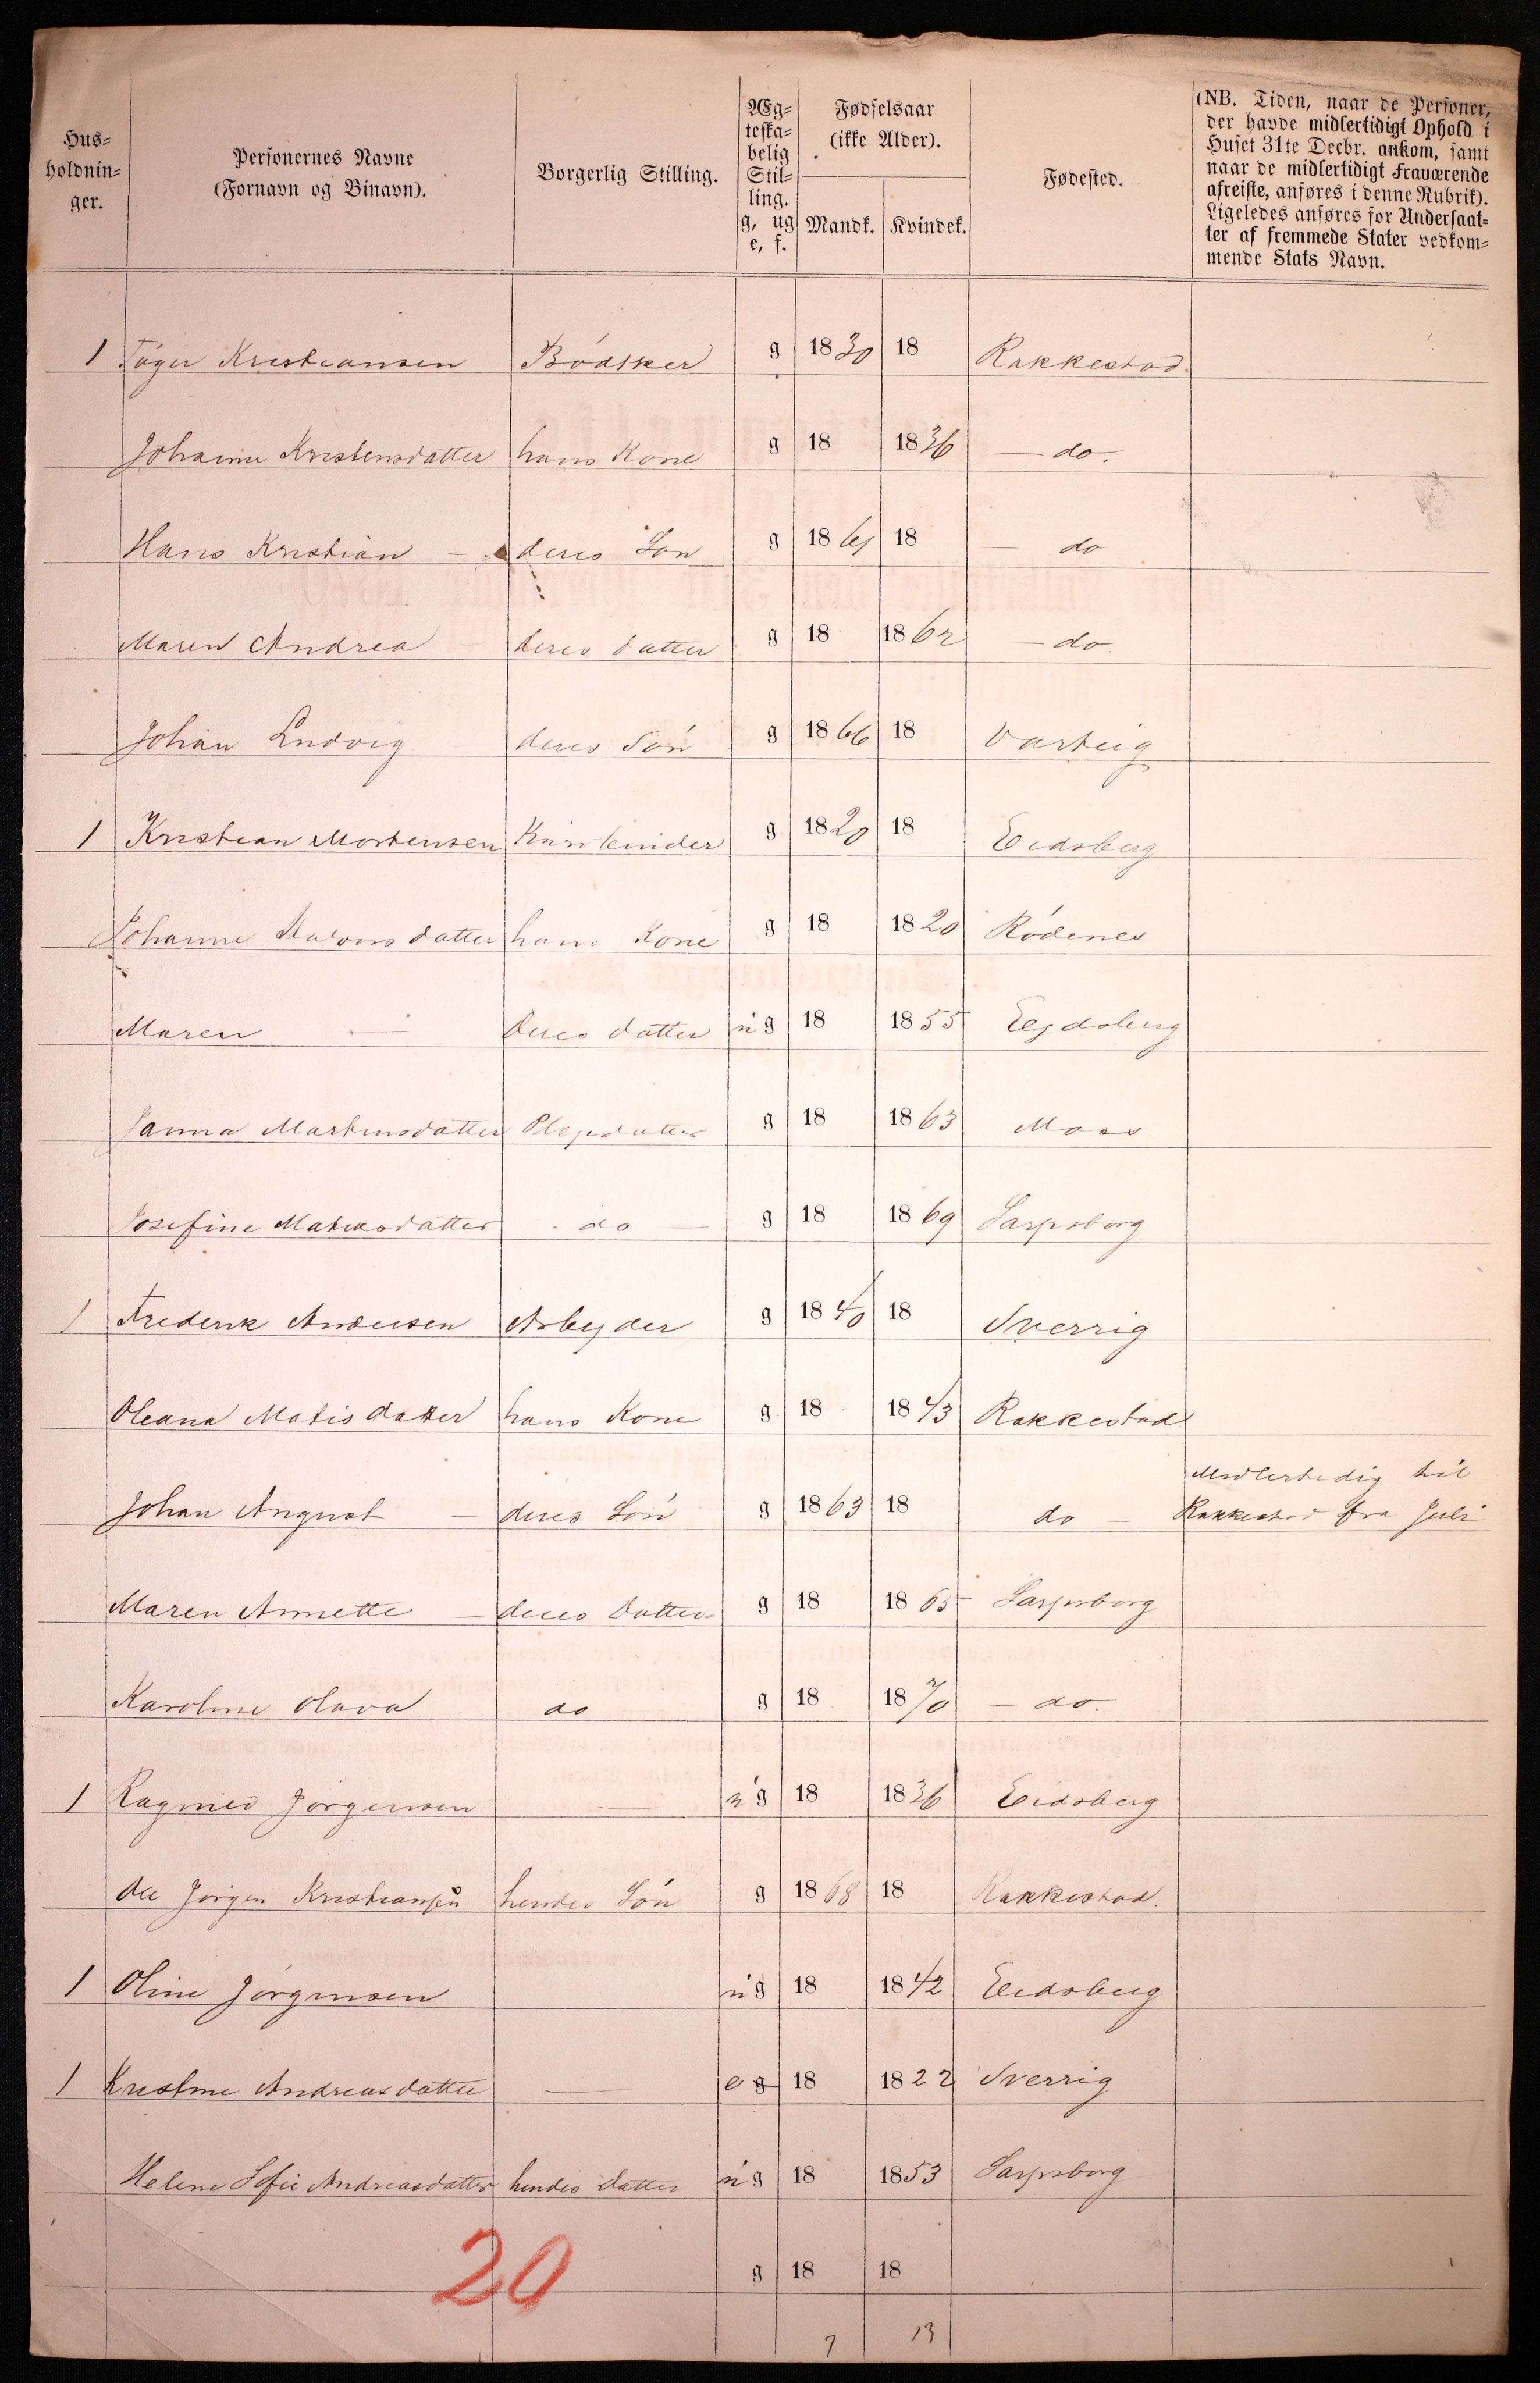 Hus-
holdnin-
ger.
Personernes Navne
(Fornavn og Binavn).
Borgerlig Stilling.
Æg-
teska-
belig
Stil-
ling.
g, ug
e, f.
Fødselsaar
(ikke Alder).
Mandk. Kvindek.
Fødested.
(NB. Tiden, naar de Personer,
der havde midlertidigt Ophold i
Huset 31te Decbr. ankom, samt
naar de midlertidigt Fraværende
afreiste, anføres i denne Rubrik).
Ligeledes anføres for Undersaat-
ter af fremmede Stater vedkom-
mende Stats Navn.
1 Kristiansen Bødker g 1830 18 Rakkestad.
Johanne Kristensdatter hans Kone g 18 1836 — do.
Hans Kristian — deres Søn g 1861 18 — do
Maren Andrea — deres datter g 18 1862 — do.
Johan Ludvig deres Søn g 1866 18 Varteig
1 Kristian Mortensen g 1820 18 Eidsberg
Johanne hans Kone g 18 1820 Rødenes
Maren — deres datter ug 18 1855 Eejdsberg
Janna Martinsdatter Plejedatter g 18 1863 Moss
Josefine do — g 18 1869 Sarpsborg
1 Frederik Andersen Arbejder g 1840 18 Sverrig
Oleana Matisdatter hans Kone g 18 1843 Rakkestad
Johan August — deres Søn g 1863 18 do — Midlertidig til
Rakkestad fra Juli
Maren Annette — deres Datter g 18 1865 Sarpsborg
Karoline Olava do g 18 1870 — do.
1 Jørgensen — ug 18 1836 Eidsberg
Ole Jørgen Kristiansen hendes Søn g 1868 18 Rakkestad.
1 Oline Jørgensen ug 18 1842 Eidsberg
1 Kristine Andreasdatter — e g 18 1822 Sverrig
Helene Sofie Andreasdatter hendes datter ug 18 1853 Sarpsborg
20
g 18 18
7 13